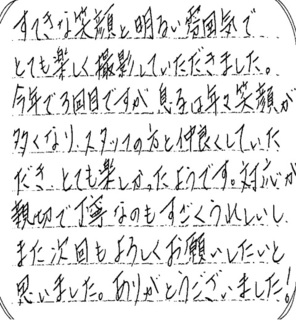 すてきな笑顔と明るい雰囲気で
とても楽しく撮影していただきました。
今年で3回目ですが息子は年々笑顔が
多くなり、スタッフの方と仲良くしていた
だき、とても楽しかったようです。対応が
親切で丁寧なのもすごくうれしいし
また次回もよろしくお願いしたいと
思いました。ありがとうございました!